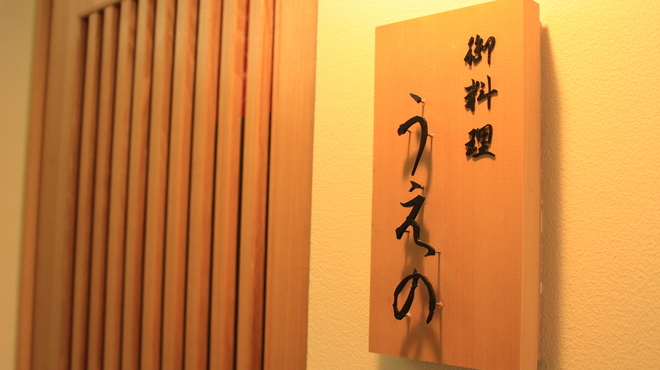 御料理
うえの